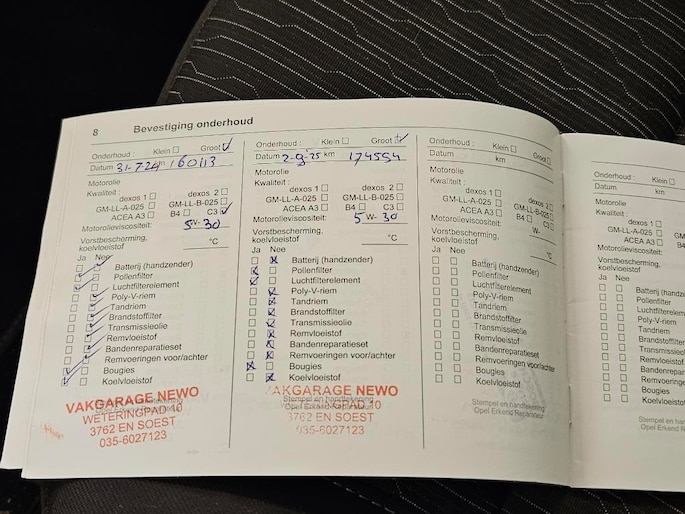 8 Bevestiging onderhoud
Onderhoud : Klein Groot
Datum 31-7-24 km 160113
Motorolie
Kwaliteit :
dexos 1 dexos 2
GM-LL-A-025 GM-LL-B-025
ACEA A3 B4 C3
Motorolieviscositeit: 5 W- 30
Vorstbescherming, koelvloeistof °C
Ja Nee
Batterij (handzender)
Pollenfilter
Luchtfilterelement
Poly-V-riem
Tandriem
Brandstoffilter
Transmissieolie
Remvloeistof
Bandenreparatieset
Remvoeringen voor/achter
Bougies
Koelvloeistof
VAKGARAGE NEWO
WETERINGPAD 10
3762 EN SOEST
035-6027123
Onderhoud : Klein Groot
Datum 2-9-25 km 174554
Motorolie
Kwaliteit :
dexos 1 dexos 2
GM-LL-A-025 GM-LL-B-025
ACEA A3 B4 C3
Motorolieviscositeit: 5 W- 30
Vorstbescherming,
koelvloeistof °C
Ja Nee
Batterij (handzender)
Pollenfilter
Luchtfilterelement
Poly-V-riem
Tandriem
Brandstoffilter
Transmissieolie
Remvloeistof
Bandenreparatieset
Remvoeringen voor/achter
Bougies
Koelvloeistof
AKGARAGE NEWO
Stempel en handtekening
Opel Erkend Reparateur
10
3762 EN SOEST
035-6027123
Onderhoud : Klein Groot
Datum km
Motorolie
Kwaliteit :
dexos 1 dexos 2
GM-LL-A-025 GM-LL-B-025
ACEA A3 B4 C3
Motorolieviscositeit: W-
Vorstbescherming,
koelvloeistof °C
Ja Nee
Batterij (handzender)
Pollenfilter
Luchtfilterelement
Poly-V-riem
Tandriem
Brandstoffilter
Transmissieolie
Remvloeistof
Bandenreparatieset
Remvoeringen voor/achter
Bougies
Koelvloeistof
Stempel en handtekening
Opel Erkend Reparateur
Onderhoud : Klein
Datum km
Motorolie
Kwaliteit :
dexos 1
GM-LL-A-025
ACEA A3
Motorolieviscositeit:
Vorstbescherming,
koelvloeistof
Ja Nee
Batterij (handz
Pollenfilter
Luchtfilterelem
Poly-V-riem
Tandriem
Brandstoffilter
Transmissieolie
Remvloeistof
Bandenreparati
Remvoeringen
Bougies
Koelvloeistof
Stempel en hand
Opel Erkend R